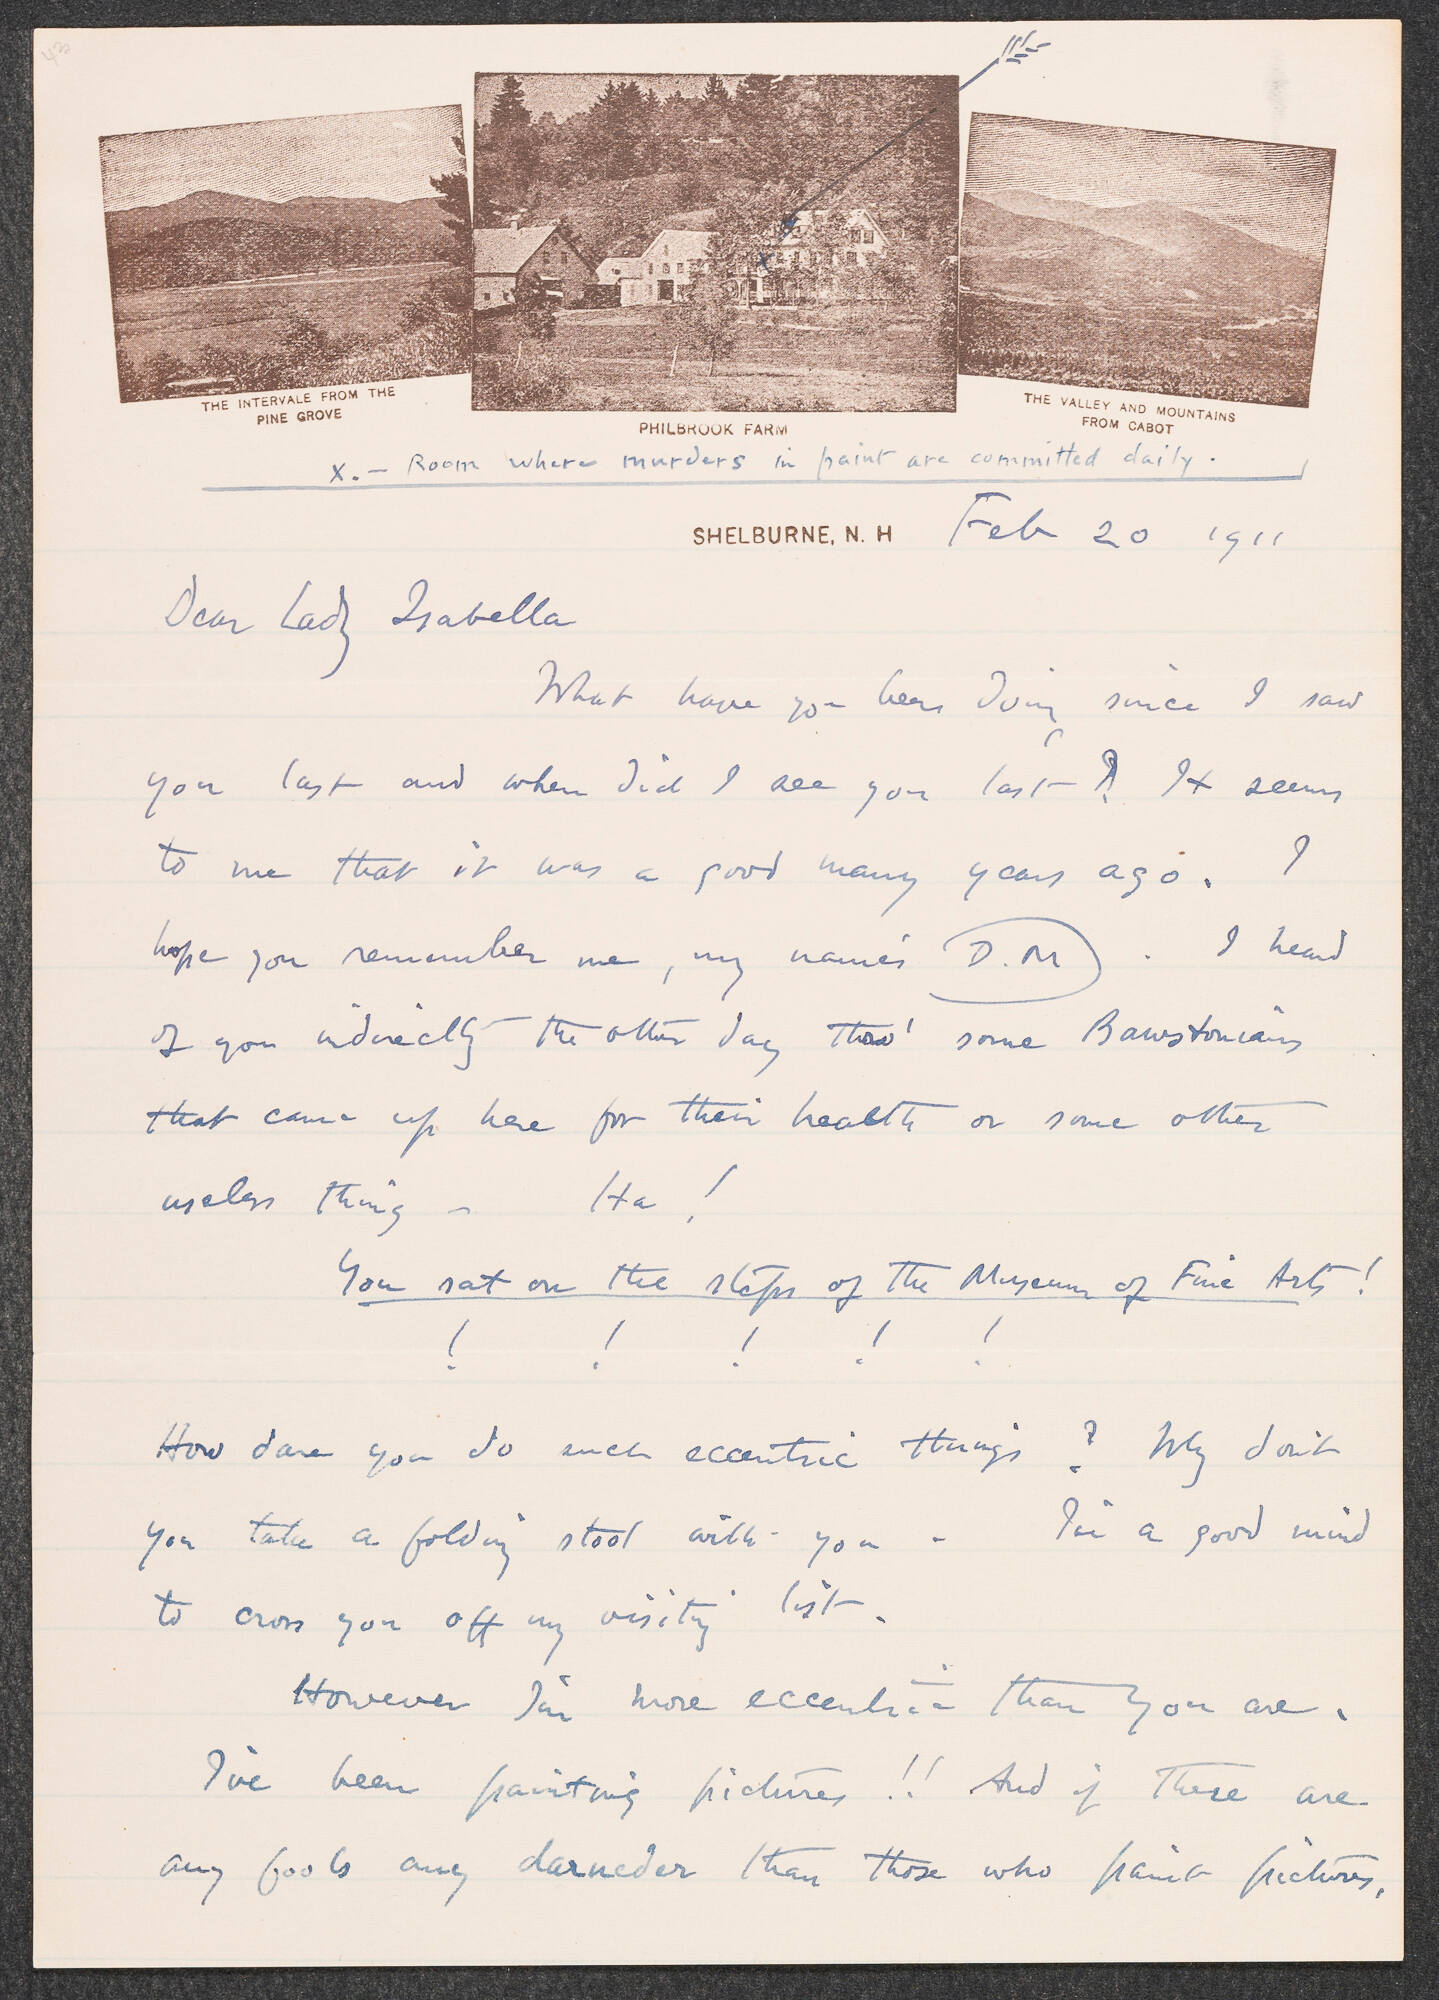 THE INTERVALE FROM THE
PINE GROVE
PHILBROOK FARM
THE VALLEY AND MOUNTAINS
FROM CABOT
x. – Room where murders in paint are committed daily.
SHELBURNE, N. H Feb 20 1911
Dear Lady Isabella
What have you been doing since I saw
you last and when did I see you last? It seems
to me that it was a good many years ago. I
hope you remember me, my name's D.M. I heard
of you indirectly the other day thro' some Bawstonians
that came up here for their health or some other
useless thing – Ha!
You sat on the steps of the Museum of Fine Arts!
! ! ! ! !
How dare you do such eccentric things? Why don't
you take a folding stool with you – I'm a good mind
to cross you off my visiting list.
However I'm more eccentric than you are.
I've been painting pictures!! And if there are
any fools any darneder than those who paint pictures,